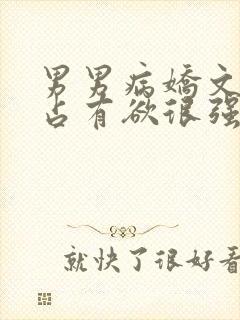 男男病嬌文
占有欲很强
就快了很好看